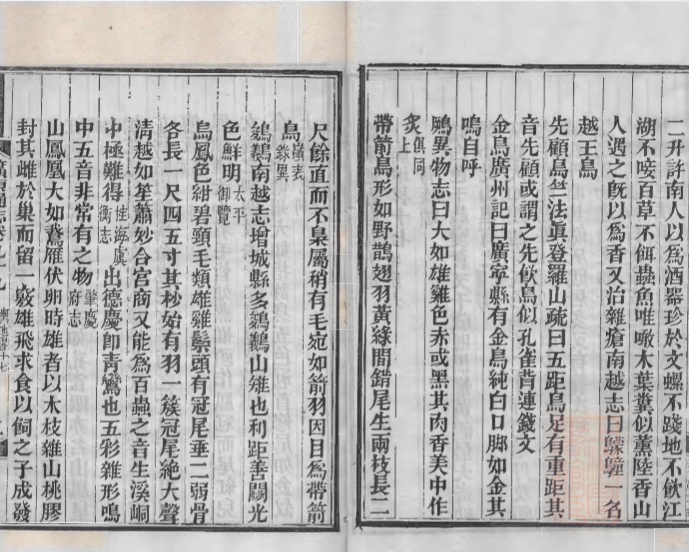 二升許南人以爲酒器珍於文螺不踐地不飲江
湖不唼百草不餌蟲魚唯噉木葉糞似薰陸香山
人遇之旣以爲香又治雜瘡南越志曰 一名
越王鳥
先顧鳥竺法眞登羅山疏曰五距鳥足有重距其
音先顧或謂之先飲鳥似孔雀背連錢文
金鳥廣州記曰廣寧縣有金鳥純白口脚如金其
鳴自呼
鷵異物志曰大如雄雞色赤或黑其肉香美中作
炙俱同上
帶箭鳥形如野鵲翅羽黃綠間錯尾生兩枝長二
尺餘直而不裊屬稍有毛宛如箭羽因目爲帶箭
鳥嶺表錄異
鷄鵲南越志增城縣多鷄鵲山雉也利距善鬭光
色鮮明太平御覽
烏鳳色紺碧頸毛類雄雞鬃頭有冠尾垂二弱骨
各長一尺四五寸其杪始有羽一簇冠尾絶大聲
清越如笙簫妙合宮商又能爲百蟲之音生溪峒
中極難得桂海虞衡志出德慶卽靑鸞也五彩雜形鳴
中五音非常有之物肇慶府志
山鳳凰大如鵞雁伏卵時雄者以木枝雜山桃膠
封其雌於巢而留一竅雄飛求食以飼之子成發
廣東通志卷九十九